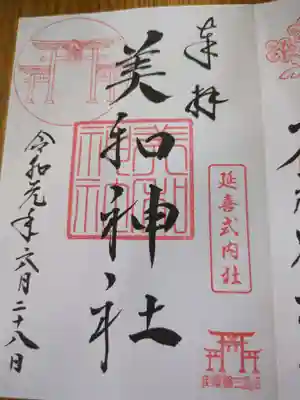 奉拝
延喜式内社
美和神社
美和
神社
令和元年六月二十八日